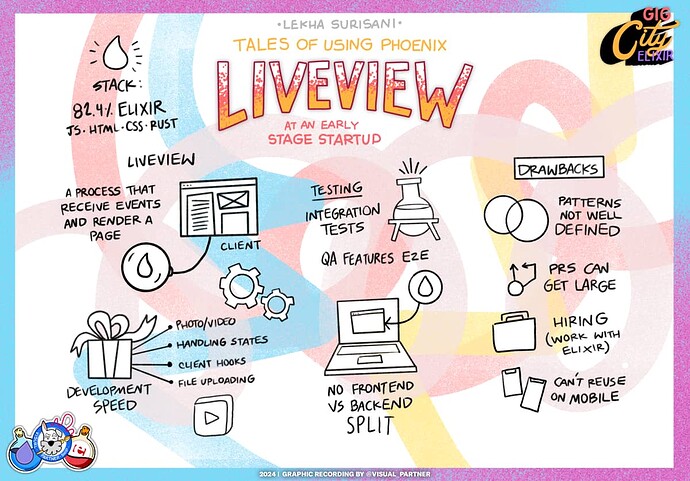 • LEKHA SURISANI •
TALES OF USING PHOENIX
LIVEVIEW
AT AN EARLY
STAGE STARTUP
GIG
City
ELIXIR
STACK:
82.4% ELIXIR
JS • HTML • CSS • RUST
LIVEVIEW
A PROCESS THAT
RECEIVE EVENTS
AND RENDER A
PAGE
CLIENT
PHOTO/VIDEO
HANDLING STATES
CLIENT HOOKS
FILE UPLOADING
DEVELOPMENT
SPEED
TESTING
INTEGRATION
TESTS
QA FEATURES E2E
NO FRONTEND
VS BACKEND
SPLIT
DRAWBACKS
PATTERNS
NOT WELL
DEFINED
PRS CAN
GET LARGE
HIRING
(WORK WITH
ELIXIR)
CAN'T REUSE
ON MOBILE
2024 | GRAPHIC RECORDING BY @VISUAL_PARTNER